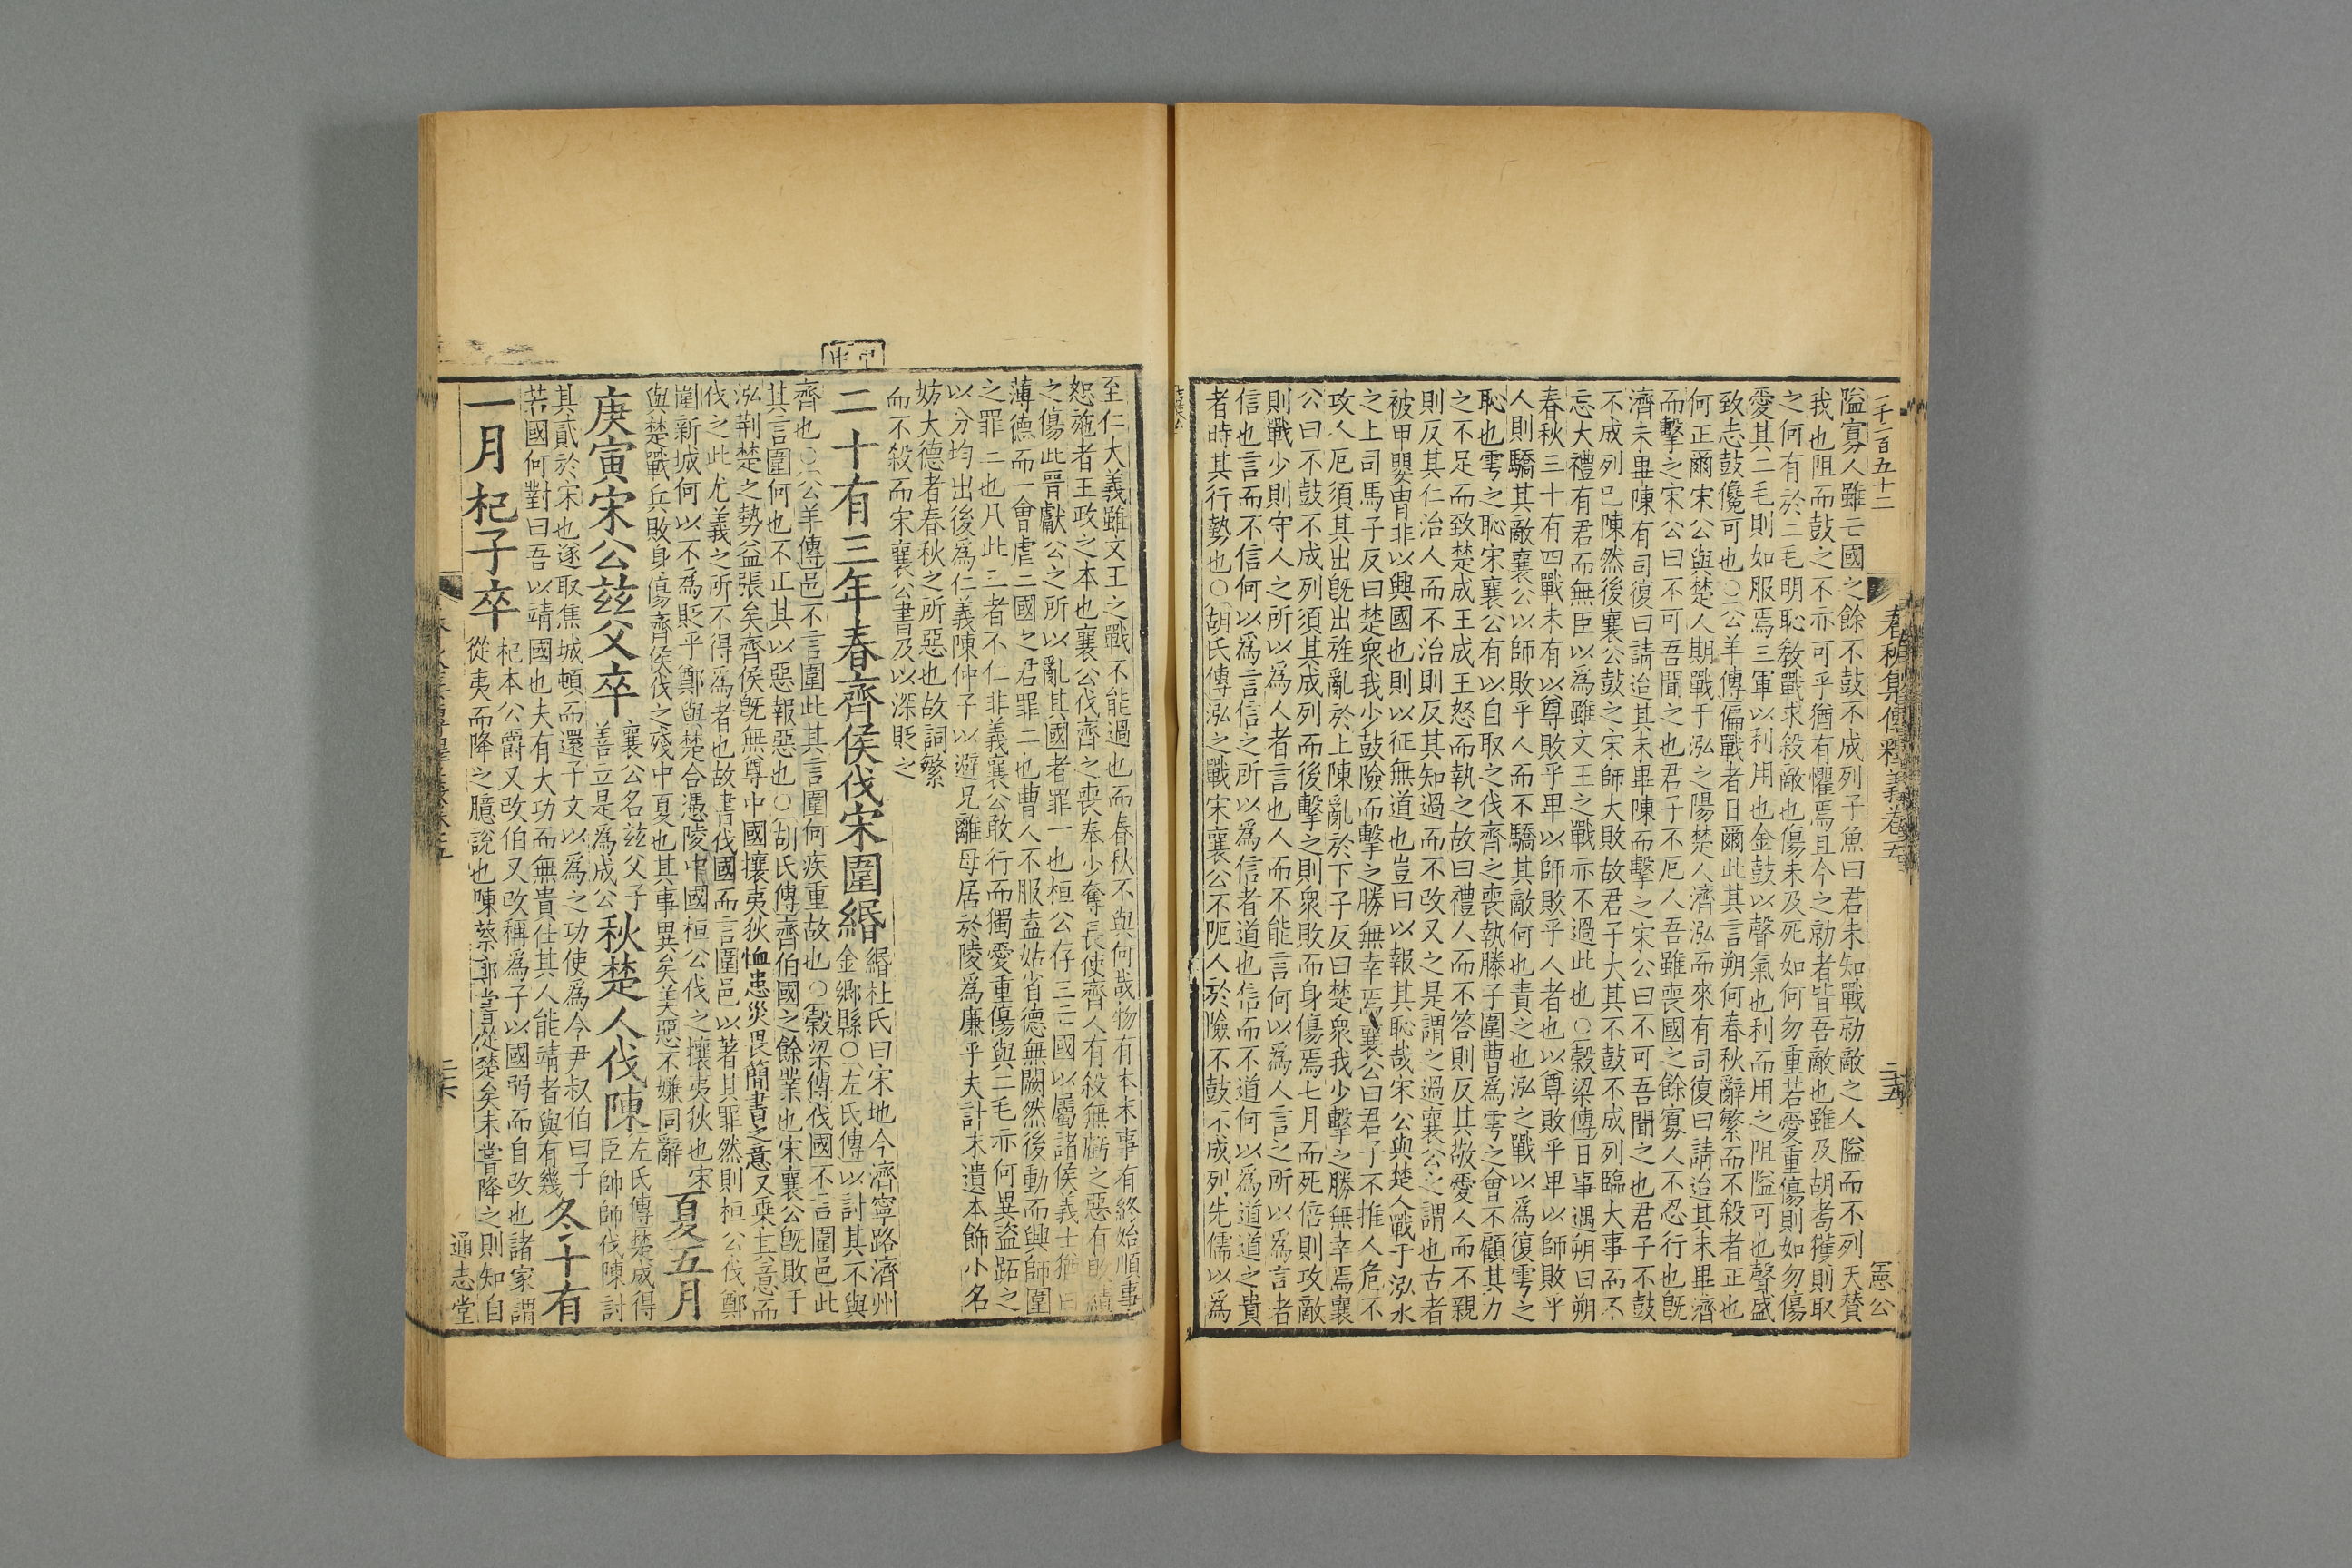 一千二百五十二
春秋集傳釋義卷五
二十五
憲公
隘寡人雖亡國之餘不鼓不成列子魚曰君未知戰勍敵之人隘而不列天贊
我也阻而鼓之不亦可乎猶有懼焉且今之勍者皆吾敵也雖及胡耇獲則取
之何有於二毛明恥敎戰求殺敵也傷未及死如何勿重若愛重傷則如勿傷
愛其二毛則如服焉三軍以利用也金鼓以聲氣也利而用之阻隘可也聲盛
致志鼓儳可也〇公羊傳偏戰者日爾此其言朔何春秋辭繁而不殺者正也
何正爾宋公與楚人期戰于泓之陽楚人濟泓而來有司復曰請迨其未畢濟
而擊之宋公曰不可吾聞之也君子不厄人吾雖喪國之餘寡人不忍行也旣
濟未畢陳有司復曰請迨其未畢陳而擊之宋公曰不可吾聞之也君子不鼓
不成列已陳然後襄公鼓之宋師大敗故君子大其不鼓不成列臨大事而不
忘大禮有君而無臣以為雖文王之戰亦不過此也〇穀梁傳日事遇朔曰朔
春秋三十有四戰未有以尊敗乎卑以師敗乎人者也以尊敗乎卑以師敗乎
人則驕其敵襄公以師敗乎人而不驕其敵何也責之也泓之戰以為復雩之
恥也雩之恥宋襄公有以自取之伐齊之喪執滕子圍曹為雩之會不顧其力
之不足而致楚成王成王怒而執之故曰禮人而不答則反其敬愛人而不親
則反其仁治人而不治則反其知過而不改又之是謂之過襄公之謂也古者
被甲嬰胄非以興國也則以征無道也豈曰以報其恥哉宋公與楚人戰于泓水
之上司馬子反曰楚衆我少鼓險而擊之勝無幸焉襄公曰君子不推人危不
攻人厄須其出旣出旌亂於上陳亂於下子反曰楚衆我少擊之勝無幸焉襄
公曰不鼓不成列須其成列而後擊之則衆敗而身傷焉七月而死倍則攻敵
則戰少則守人之所以為人者言也人而不能言何以為人言之所以為言者
信也言而不信何以為言信之所以為信者道也信而不道何以為道道之貴
者時其行勢也〇胡氏傳泓之戰宋襄公不阨人於險不鼓不成列先儒以為
至仁大義雖文王之戰不能過也而春秋不與何哉物有本末事有終始順事
恕施者王政之本也襄公伐齊之喪奉少奪長使齊人有殺無虧之惡有敗績
之傷此晉獻公之所以亂其國者罪一也桓公存三亡國以屬諸侯義士猶曰
薄德而一會虐二國之君罪二也曹人不服盍姑省德無闕然後動而興師圍
之罪三也凡此三者不仁非義襄公敢行而獨愛重傷與二毛亦何異盜跖之
以分均出後為仁義陳仲子以避兄離母居於陵為廉乎夫計末遺本飾小名
妨大德者春秋之所惡也故詞繁
而不殺而宋襄公書及以深貶之
二十有三年春齊侯伐宋圍緡
緡杜氏曰宋地今濟寧路濟州
金鄉縣〇左氏傳以討其不與
齊也〇公羊傳邑不言圍此其言圍何疾重故也〇穀梁傳伐國不言圍邑此
其言圍何也不正其以惡報惡也〇胡氏傳齊伯國之餘業也宋襄公旣敗于
泓荆楚之勢益張矣齊侯旣無尊中國攘夷狄恤患災畏簡書之意又乗其憊而
伐之此尤義之所不得為者也故書伐國而言圍邑以著其罪然則桓公伐鄭
圍新城何以不為貶乎鄭與楚合憑陵中國桓公伐之攘夷狄也宋
與楚戰兵敗身傷齊侯伐之殘中夏也其事異矣美惡不嫌同辭
夏五月
庚寅宋公茲父卒
襄公名茲父子
善立是為成公
秋楚人伐陳
左氏傳楚成得
臣帥師伐陳討
其貳於宋也遂取焦城頓而還子文以為之功使為令尹叔伯曰子
若國何對曰吾以靖國也夫有大功而無貴仕其人能靖者與有幾
冬十有
一月杞子卒
杞本公爵又改伯又改稱為子以國弱而自改也諸家謂
從夷而降之臆說也陳蔡鄭嘗從楚矣未嘗降之則知自
二十六
通志堂